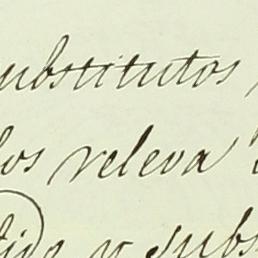 ubstitutos
los releva
tido y subs